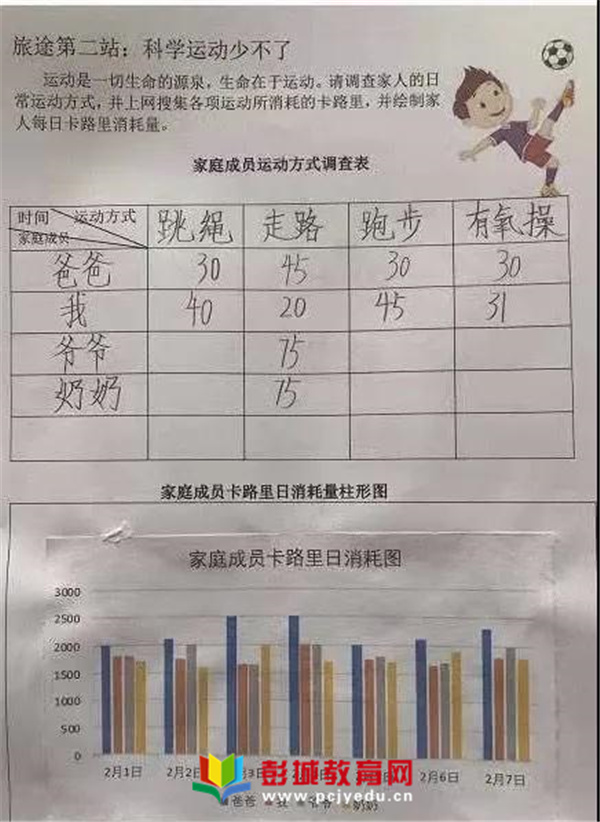 旅途第二站：科学运动少不了
运动是一切生命的源泉，生命在于运动。请调查家人的日
常运动方式，并上网搜集各项运动所消耗的卡路里，并绘制家
人每日卡路里消耗量。
家庭成员运动方式调查表
时间 运动方式 家庭成员 跳绳 走路 跑步 有氧操
爸爸 30 45 30 30
我 40 20 45 31
爷爷 75
奶奶 75
家庭成员卡路里日消耗量柱形图
家庭成员卡路里日消耗图
3000
2500
2000
1500
1000
500
0
2月1日 2月2日 2月6日 2月7日
爸爸 我 爷爷 奶奶
彭城教育网
www.pcjyedu.cn